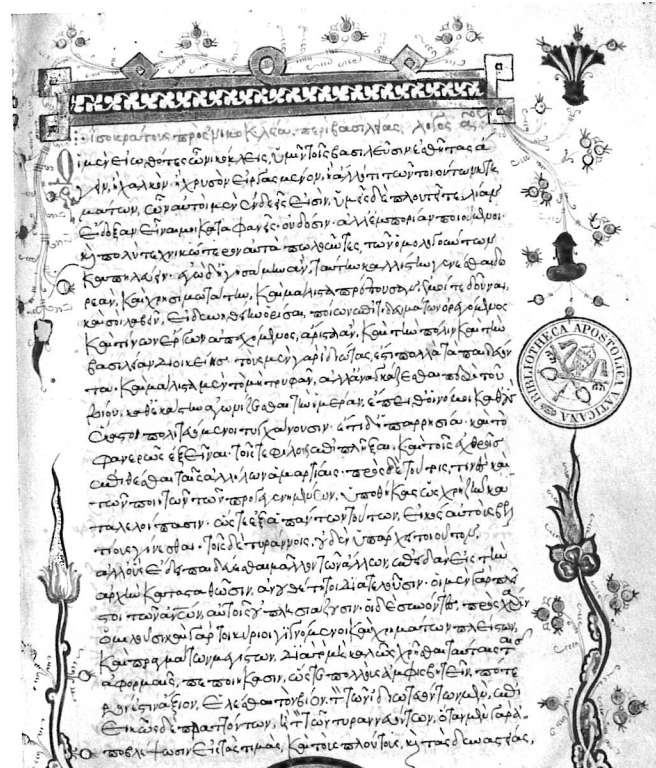 ἰσοκράτους πρὸς νικοκλέα, περὶ βασιλείας, λόγος
Οἱ μὲν εἰωθότες ὦ νικόκλεις, ὑμῖν τοῖς βασιλεῦσιν ἐσθῆτας ἄ
γειν, ἢ χαλκὸν, ἢ χρυσὸν εἰργασμένον, ἢ ἄλλό τι τῶν τοιούτων κτη
μάτων, ὧν αὐτοὶ μὲν ἐνδεεῖς εἰσιν, ὑμεῖς δὲ πλουτεῖτε, λίαν
ἔδοξαν εἶναί μοι καταφανεῖς οὐ δόσιν. ἀλλ' ἐμπορίαν ποιούμενοι.
καὶ πολὺ τεχνικώτερον αὐτὰ πωλοῦντες, τῶν ὁμολογούντων
καπηλεύειν. ἐγὼ δ' ἡγησάμην ἂν, ταύτην καλλίστην γενέσθαι δω
ρεὰν, καὶ χρησιμωτάτην, καὶ μάλιστα πρέπουσαν ἐμοί τε δοῦναι,
καὶ σοὶ λαβεῖν, εἰ δυνηθείην ὁρίσαι, ποίων ἐπιτηδευμάτων ὀρεγόμενος
καὶ τίνων ἔργων ἀπεχόμενος, ἄριστ' ἂν, καὶ τὴν πόλιν καὶ τὴν
βασιλείαν διοικοίης. τοὺς μὲν γὰρ ἰδιώτας, ἐστὶ πολλὰ τὰ παιδεύον
τα. καὶ μάλιστα μὲν τὸ μὴ τρυφᾶν, ἀλλ' ἀναγκάζεσθαι περὶ τοῦ
βίου, καθ' ἑκάστην ἀγωνίζεσθαι τὴν ἡμέραν, ἔπειθ' οἱ νόμοι καθ' οὓς
ἕκαστοι πολιτευόμενοι τυγχάνουσιν. ἔτι δ' ἡ παρρησία. καὶ τὸ
φανερῶς ἐξεῖναι. τοῖς τε φίλοις ἐπιπλῆξαι. καὶ τοῖς ἐχθροῖς
ἐπιθέσθαι ταῖς ἀλλήλων ἁμαρτίαις. πρὸς δὲ τούτοις, τινὲς καὶ
τῶν ποιητῶν τῶν προγεγενημένων, ὑποθήκας ὡς χρὴ ζῆν κα
ταλελοίπασιν. ὥστ' ἐξ ἁπάντων τούτων, εἰκὸς αὐτοὺς βελ
τίους γίγνεσθαι. τοῖς δὲ τυράννοις, οὐδὲν ὑπάρχει τοιοῦτον.
ἀλλ' οὓς ἔδει παιδεύεσθαι μᾶλλον τῶν ἄλλων, ἐπειδὰν εἰς τὴν
ἀρχὴν καταστῶσιν, ἀνουθέτητοι διατελοῦσιν. οἱ μὲν γὰρ πλεῖ
στοι τῶν ἀνθρώπων, αὐτοῖς οὐ πλησιάζουσιν. οἱ δὲ συνόντες, πρὸς χάριν
ὁμιλοῦσι. καὶ γάρ τοι κύριοι γιγνόμενοι καὶ χρημάτων πλείστων,
καὶ πραγμάτων μεγίστων, διὰ τὸ μὴ καλῶς χρῆσθαι ταύταις ταῖς
ἀφορμαῖς, πεποιήκασιν, ὥστε πολλοὺς ἀμφισβητεῖν, πότε
ρόν ἐστιν ἄξιον, ἑλέσθαι τὸν βίον. τὸν τῶν ἰδιωτευόντων μὲν, ἐπι
εικῶς δὲ πραττόντων, ἢ τὸν τῶν τυραννευόντων, ὅταν μὲν γὰρ ἀ
ποβλέψωσιν εἰς τὰς τιμὰς, καὶ τοὺς πλούτους, καὶ τὰς δυναστείας,
BIBLIOTHECA APOSTOLICA VATICANA